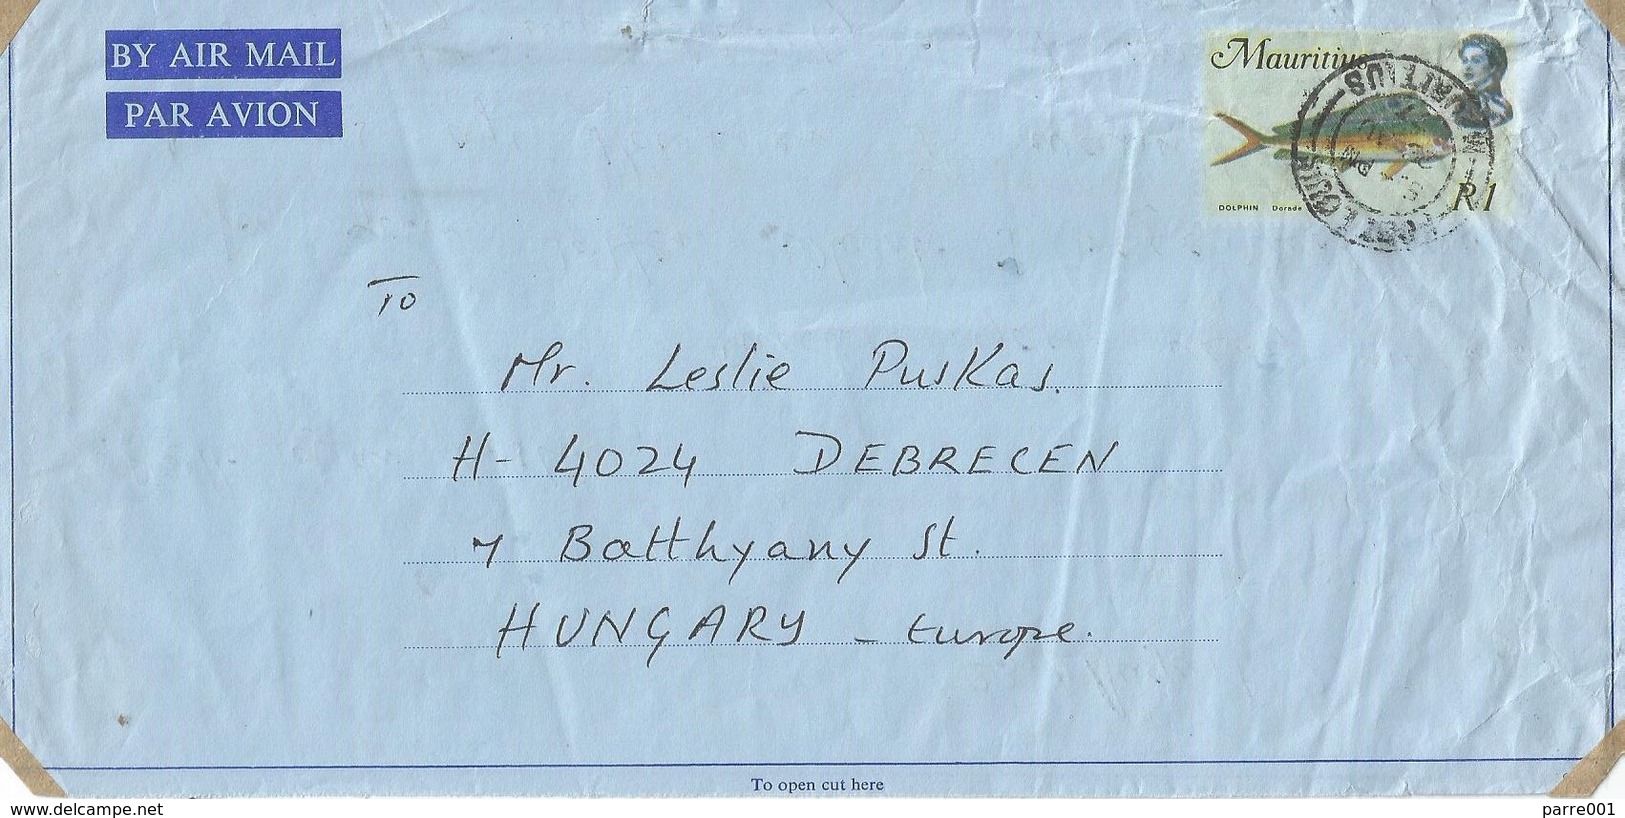 BY AIR MAIL
PAR AVION
Mauritius
DOLPHIN Dorade
R1
PORT LOUIS
MAURITIUS
PM
To
Mr. Leslie Puskas.
H- 4024 DEBRECEN
7 Batthyany St.
HUNGARY - Europe.
To open cut here
www.delcampe.net
parre001